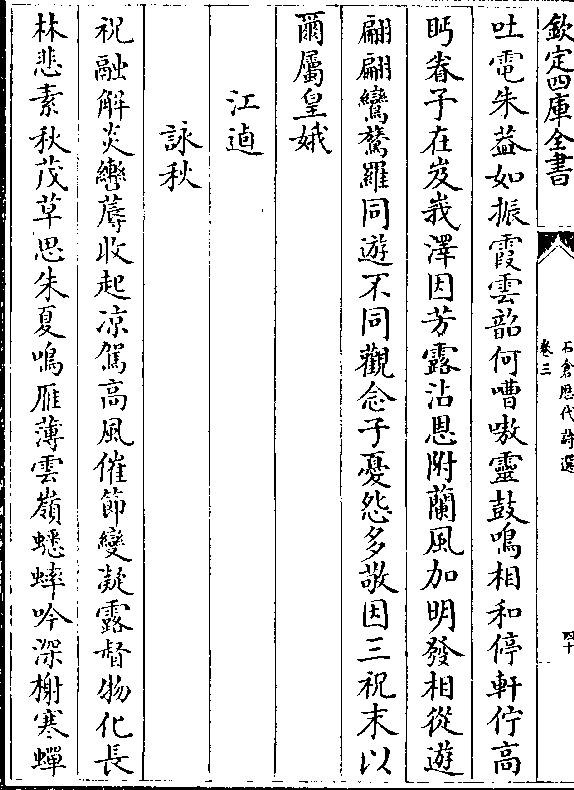 欽定四庫全書
石倉歴代詩選
卷三
四十
吐電朱葢如振霞雲韶何嘈嗷靈鼓鳴相和停軒佇高
眄眷子在岌峩澤因芳露沾恩附蘭風加明發相從遊
翩翩鸞鷟羅同遊不同觀念子憂怨多敬因三祝末以
爾屬皇娥
江逌
詠秋
祝融解炎轡蓐收起涼駕高風催節變凝露督物化長
林悲素秋茂草思朱夏鳴雁薄雲嶺蟋蟀吟深榭寒蟬